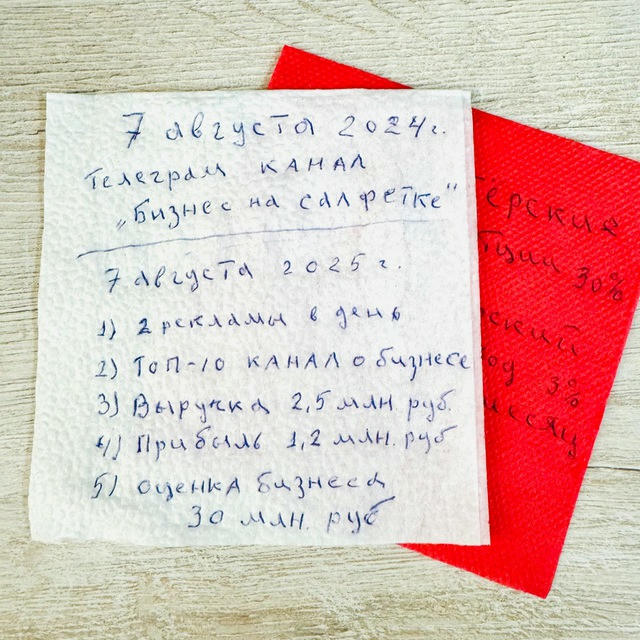 7 августа 2024г.
Телеграм канал
„Бизнес на салфетке"
7 августа 2025г.
1) 2 рекламы в день
2) Топ-10 канал о бизнесе
3) Выручка 2,5 млн. руб.
4) Прибыль 1,2 млн. руб
5) оценка бизнеса
30 млн. руб
терские
30%
ский
од 3%
месяц